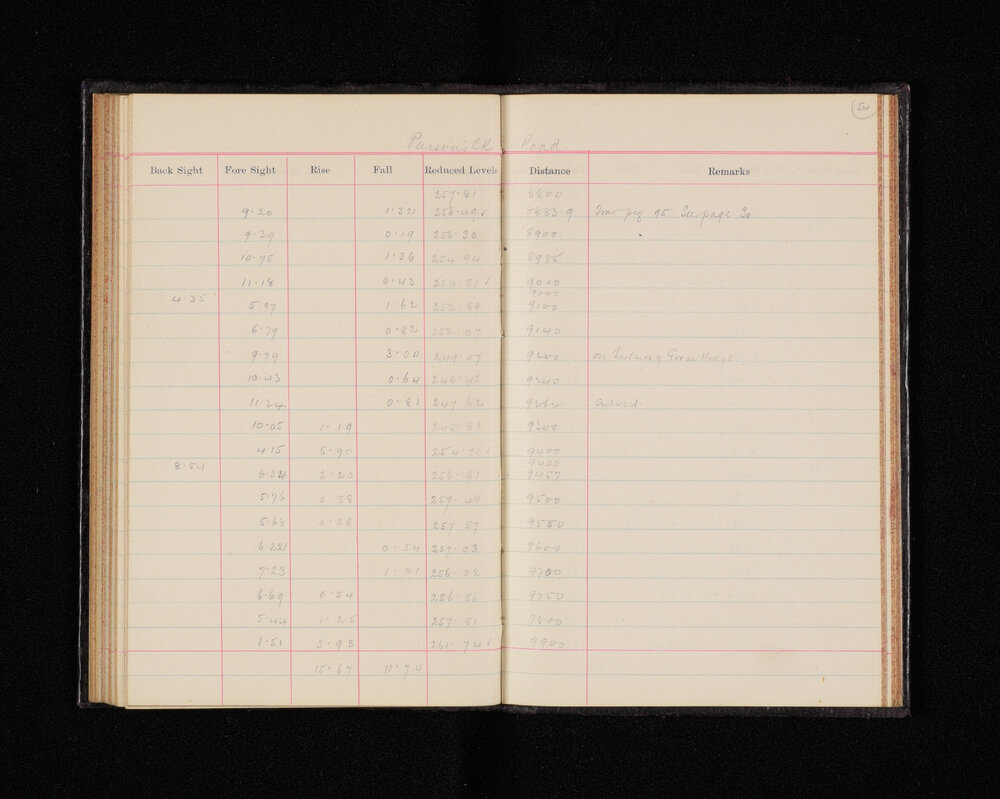 54
Parson's Ck Road
Back Sight Fore Sight Rise Fall Reduced Levels Distance Remarks
257.81 8800
9.20 1.32 256.49 8883.9 Trav peg 95 See page 30
9.39 0.19 256.30 8900
10.75 1.36 254.94 8985
11.18 0.43 254.51 9000
4.35 9000
5.97 1.62 252.89 9100
6.79 0.82 252.07 9140
9.79 3.00 249.07 9200 on Gorse Hedge
10.43 0.64 248.43 9240
11.24 0.81 247.62 9262 Culvert
10.05 1.19 248.81 9300
4.15 5.90 254.71 9400
8.54 9400
6.34 2.20 256.91 9457
5.76 0.58 257.49 9500
5.68 0.08 257.57 9550
6.22 0.54 257.03 9600
7.23 1.01 256.02 9700
6.69 0.54 256.56 9750
5.44 1.25 257.81 9800
1.51 3.93 261.74 9900
15.67 11.74